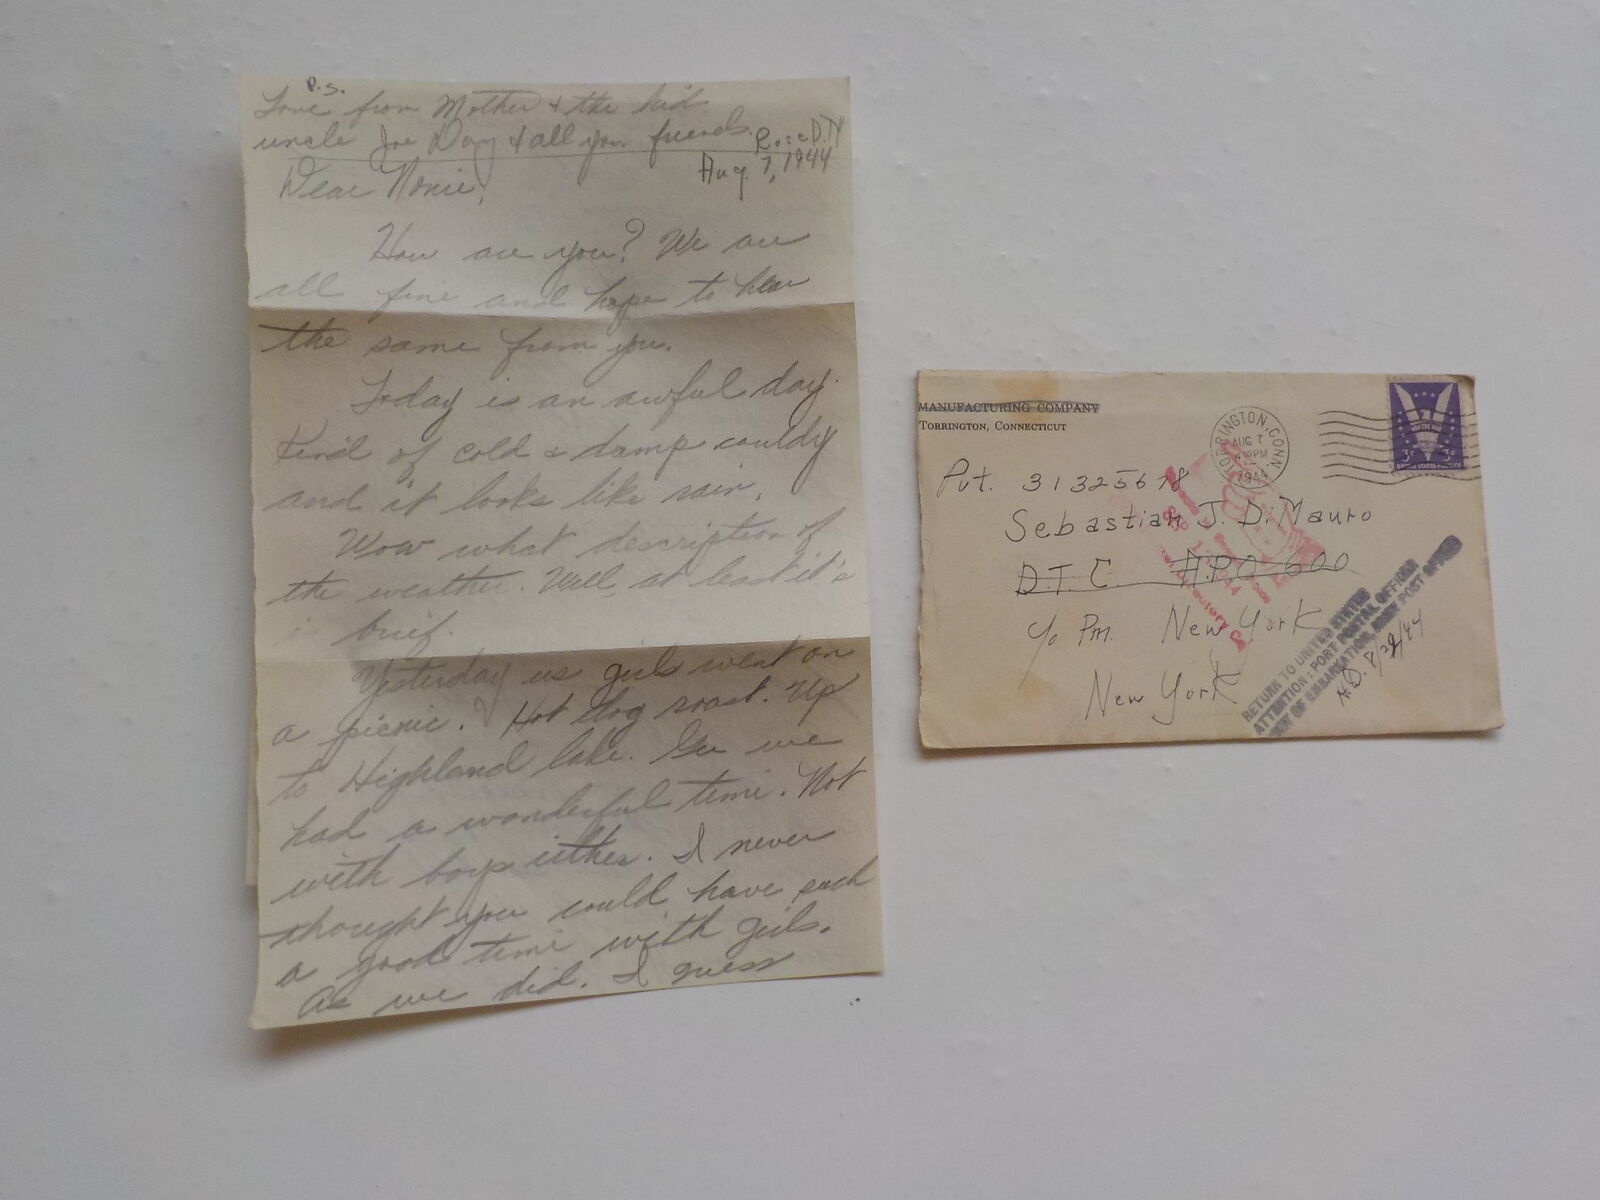 P.S.
Love from Mother & the kid
uncle Joe Day & all your friends.
Rose D. M
Aug. 7, 1944
Dear Nonie,
How are you? We are
all fine and hope to hear
the same from you.
Today is an awful day.
Kind of cold & damp couldy
and it looks like rain.
Wow what description of
the weather. Well, at least it's
brief.
Yesterday us girls went on
a picnic. Hot dog roast. Up
to Highland lake. Gee we
had a wonderful time. Not
with boys either. I never
thought you could have such
a good time with girls.
As we did. I guess
MANUFACTURING COMPANY
TORRINGTON, CONNECTICUT
TORRINGTON, CONN.
AUG 7
PM
1944
WIN THE WAR
3¢ 3¢
UNITED STATES POSTAGE
Pvt. 31325678
Sebastian J. D. Mauro
D.T.C. A.P.O. 600
c/o P.M. New York
New York
SEP 1944
Directory
RETURN TO UNITED STATES
ATTENTION: PORT POSTAL OFFICER
PORT OF EMBARKATION, ARMY POST OFFICE
H.D. 8/29/44